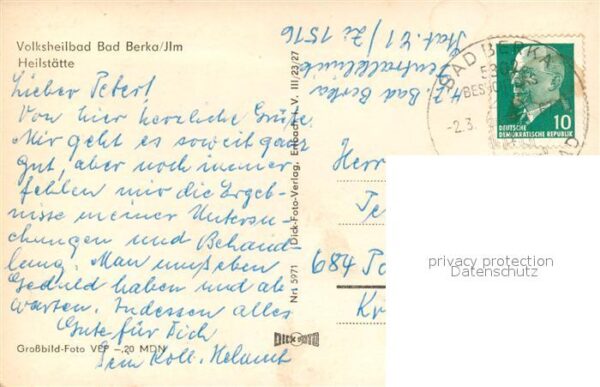 Volksheilbad Bad Berka/Jlm
Heilstätte
Lieber Peter!
Von hier herzliche Grüße.
Mir geht es soweit ganz
gut, aber noch immer
fehlen mir die Ergeb-
nisse meiner Untersu-
chungen und Behand
lung. Man muß eben
Geduld haben und ab
warten. Indessen alles
Gute für Dich
Dein Koll. Helmut
Großbild-Foto VEP -,20 MDN
Nr. 5971 (Dick-Foto-Verlag, Erlbach i. V. III/23/27
DICK FOTO
Stat. Z1/Zi 1516
Zentralklinik
Bad Berka
BAD BERKA
530
-2.3.
10
DEUTSCHE
DEMOKRATISCHE REPUBLIK
Herr
684
Kr
privacy protection
Datenschutz